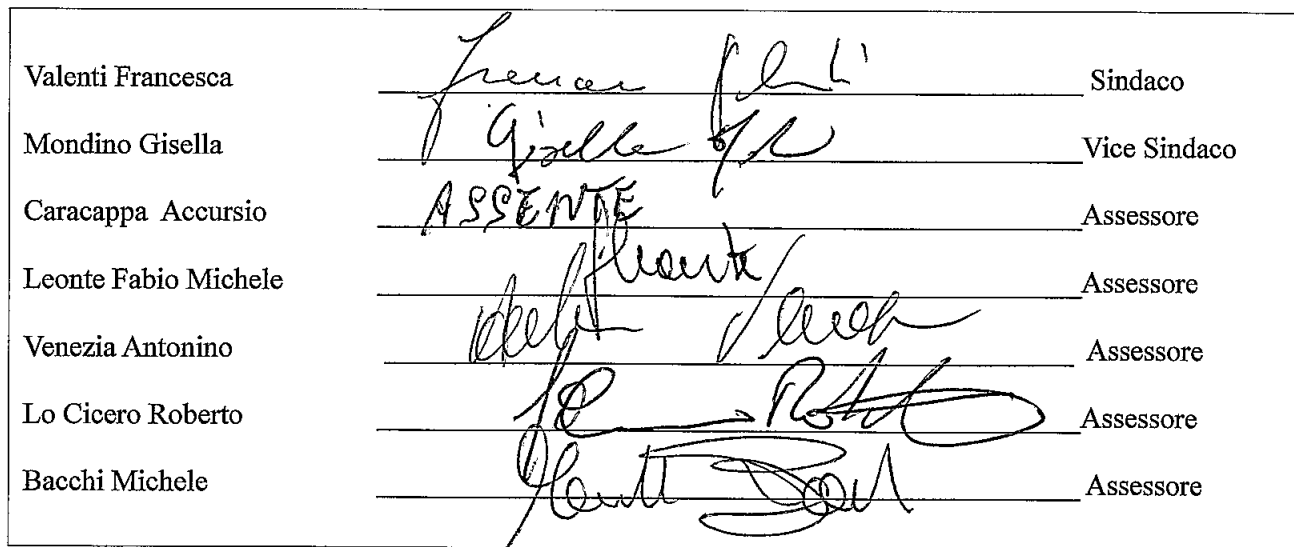 Valenti Francesca Sindaco
Mondino Gisella Gisella Vice Sindaco
Caracappa Accursio ASSENTE Assessore
Leonte Fabio Michele Assessore
Venezia Antonino Assessore
Lo Cicero Roberto Assessore
Bacchi Michele Assessore